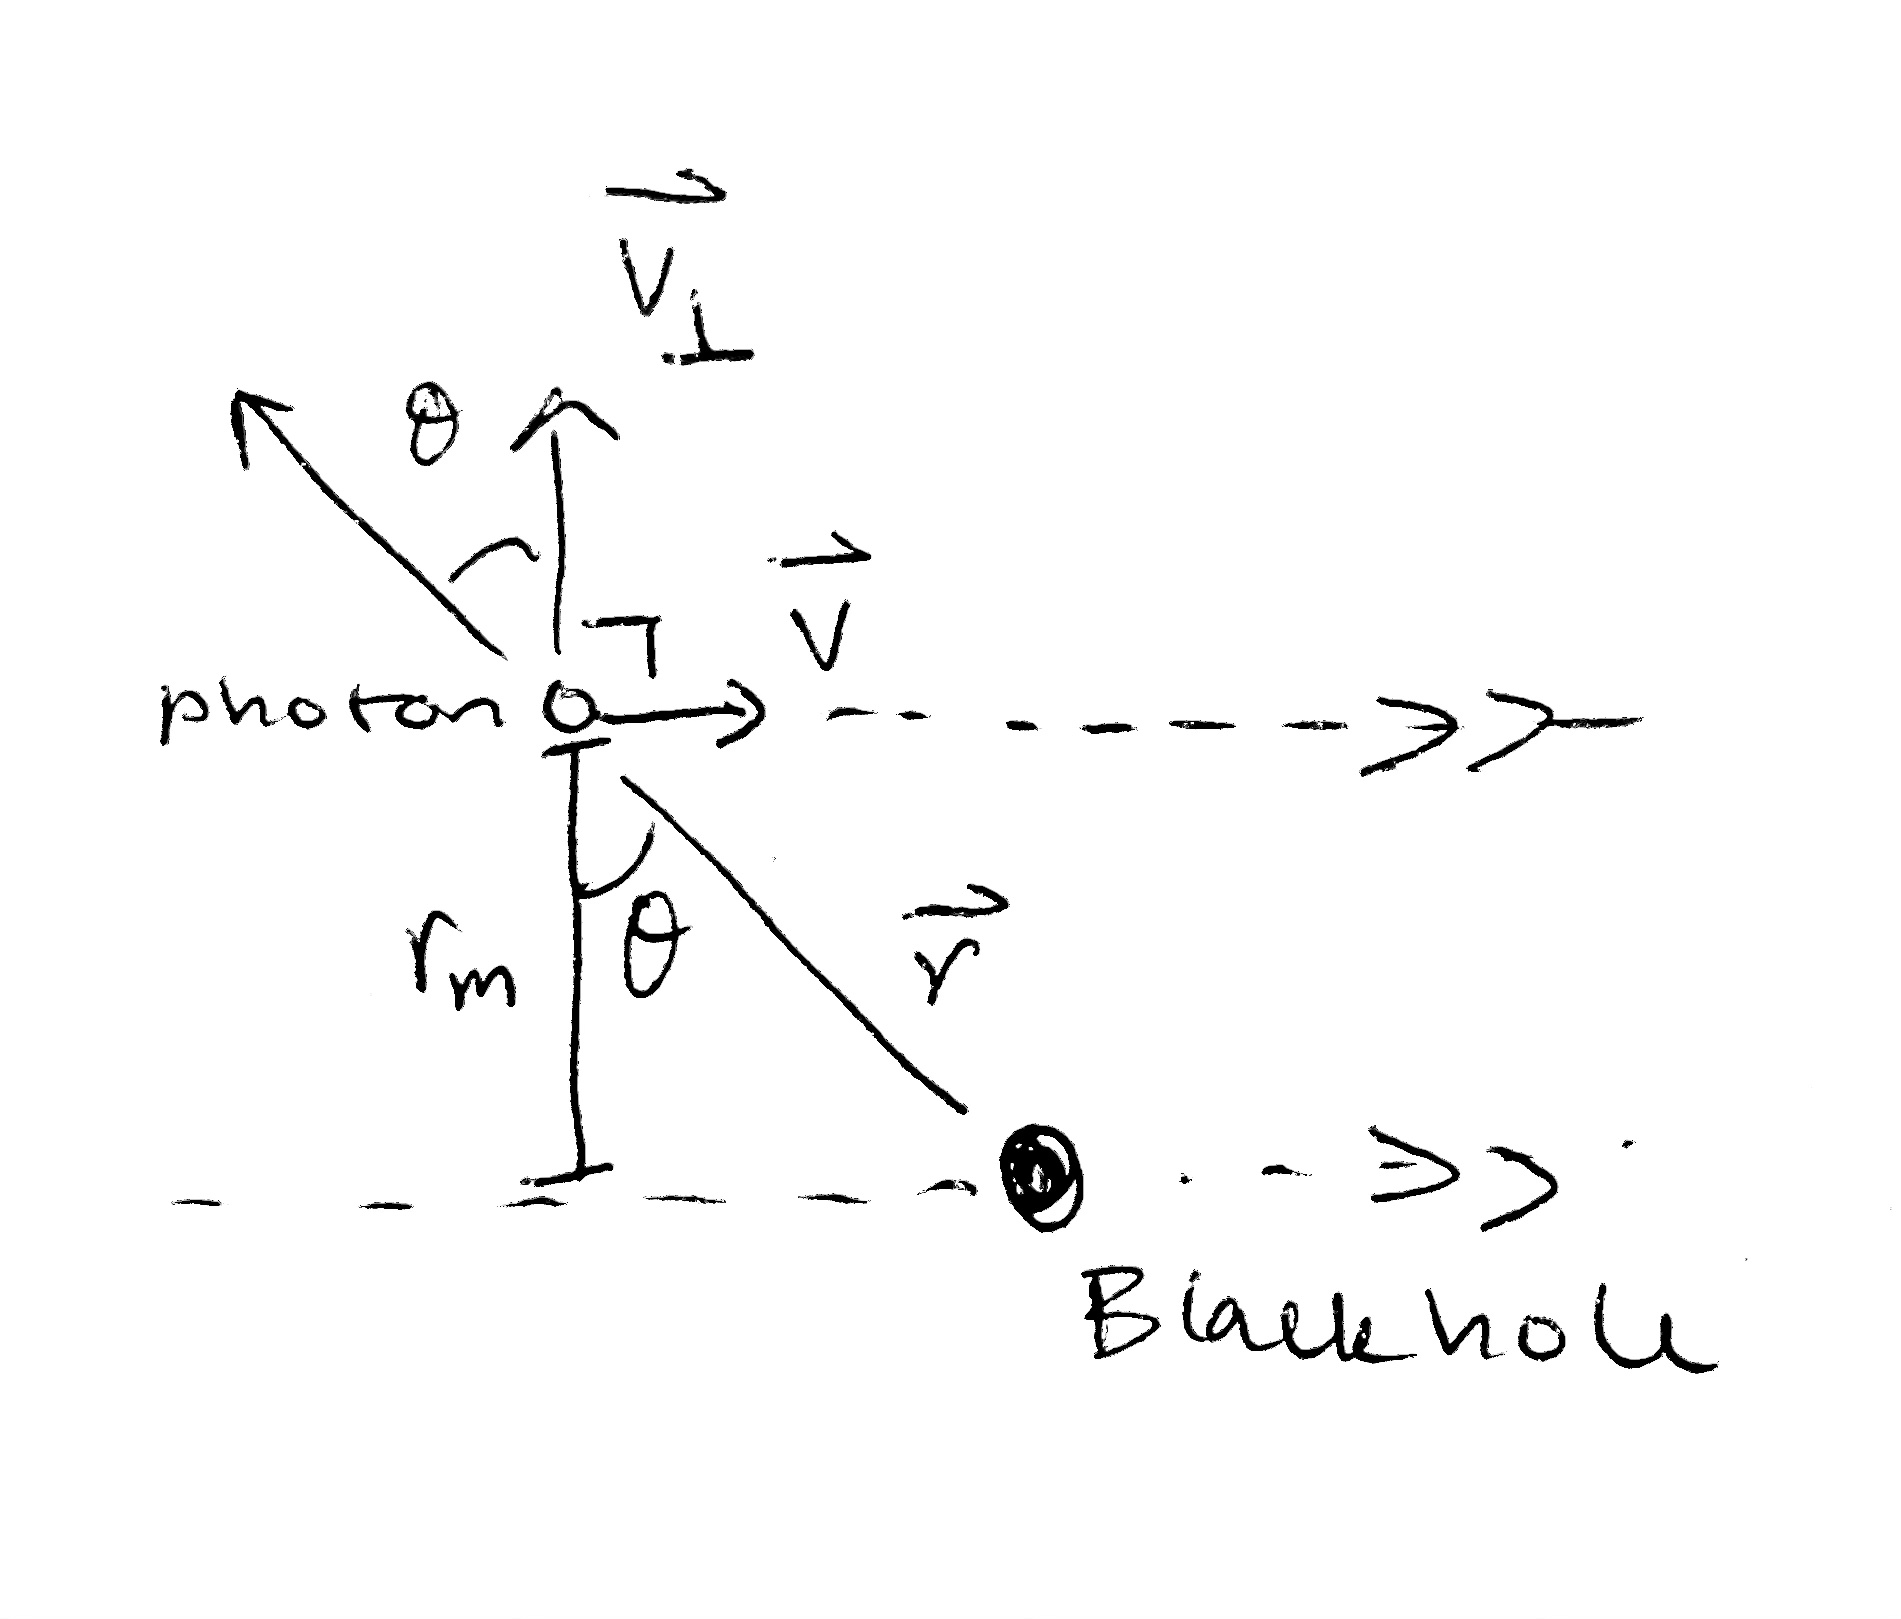 V⊥
θ
V
photon
rm
θ
r
Blackhole